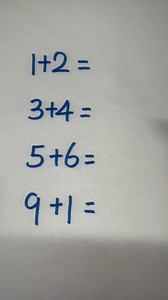 1+2=
3+4=
5+6=
9+1=